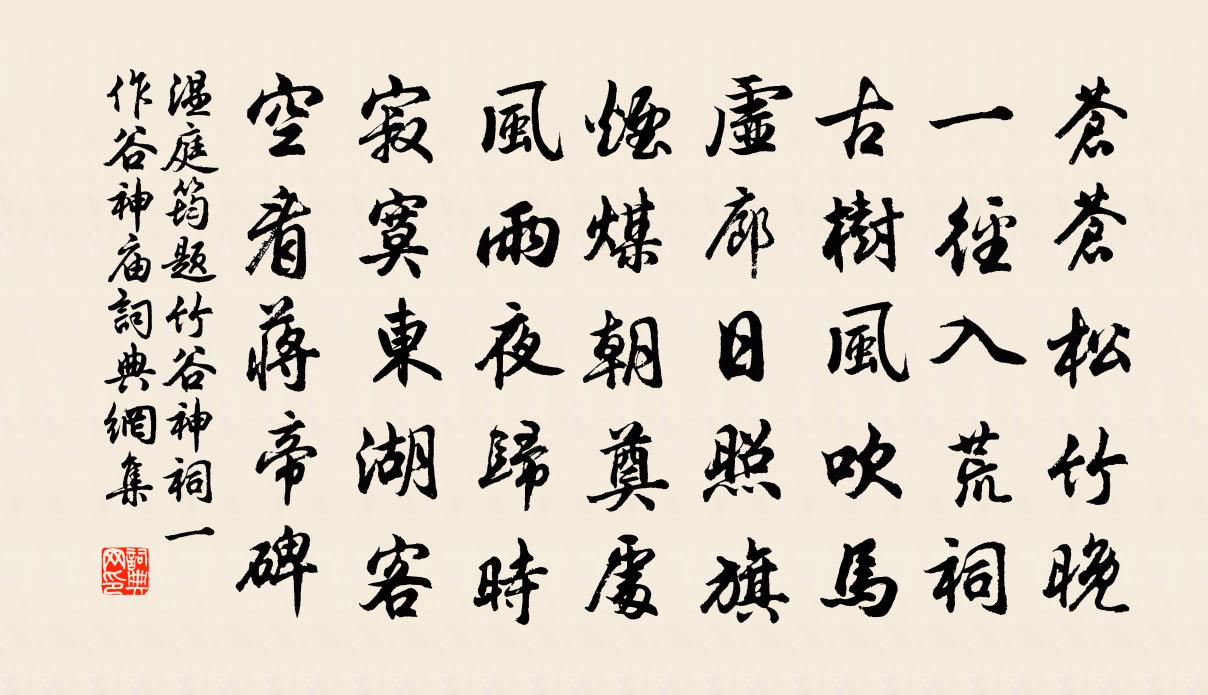 蒼蒼松竹晚
一徑入荒祠
古樹風吹馬
虛廊日照旗
煙煤朝奠處
風雨夜歸時
寂寞東湖客
空看蔣帝碑
温庭筠題竹谷神祠一
作谷神庙詞典網集
詞典网印